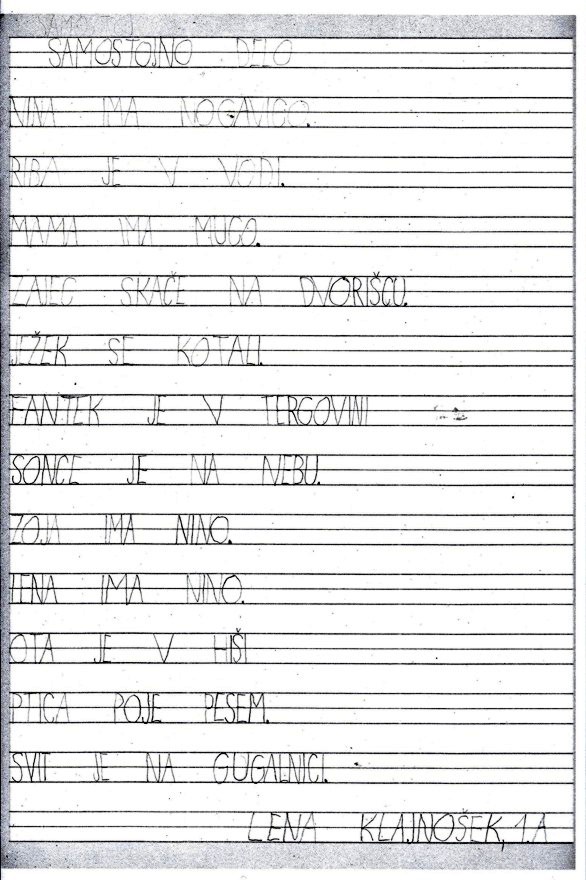 SAMOSTOJNO DELO
NINA IMA NOGAVICO.
RIBA JE V VODI.
MAMA IMA MUCO.
ZAJEC SKAČE NA DVORIŠČU.
JEŽEK SE KOTALI.
FANTEK JE V TERGOVINI
SONCE JE NA NEBU.
ZOJA IMA NINO.
LENA IMA NINO.
OTA JE V HIŠI
PTICA POJE PESEM.
SVIT JE NA GUGALNICI.
LENA KLAJNOŠEK, 1.A